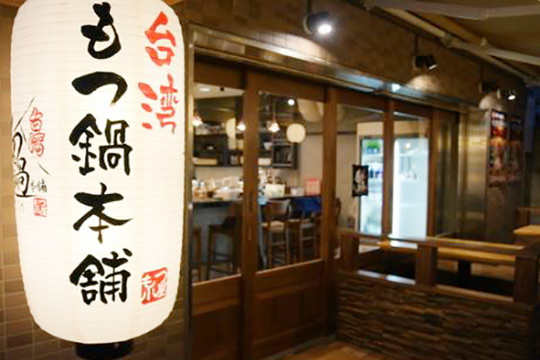 台湾
もつ鍋本舗
台湾